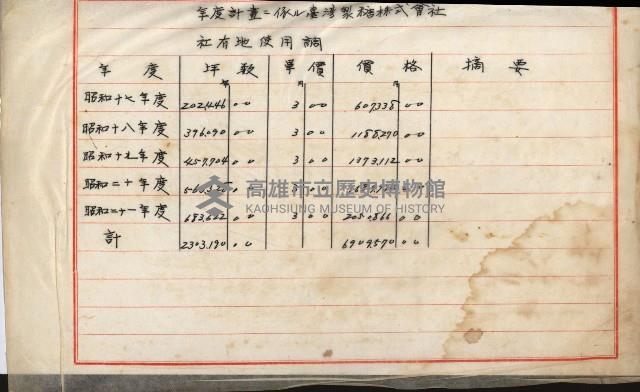 年度計畫ニ係ル臺灣製糖株式會社
社有地使用調
年度 坪数 單價 價格 摘要
坪 円 円
昭和十七年度 202,446 00 3 00 607,338 00
昭和十八年度 396,090 00 3 00 1188,270 00
昭和十九年度 457,704 00 3 00 1373,112 00
昭和二十年度
昭和二十一年度 683,622 00 3 00 2050,866 00
計 2303,190 00 6909,570 00
高雄市立歷史博物館
KAOHSIUNG MUSEUM OF HISTORY